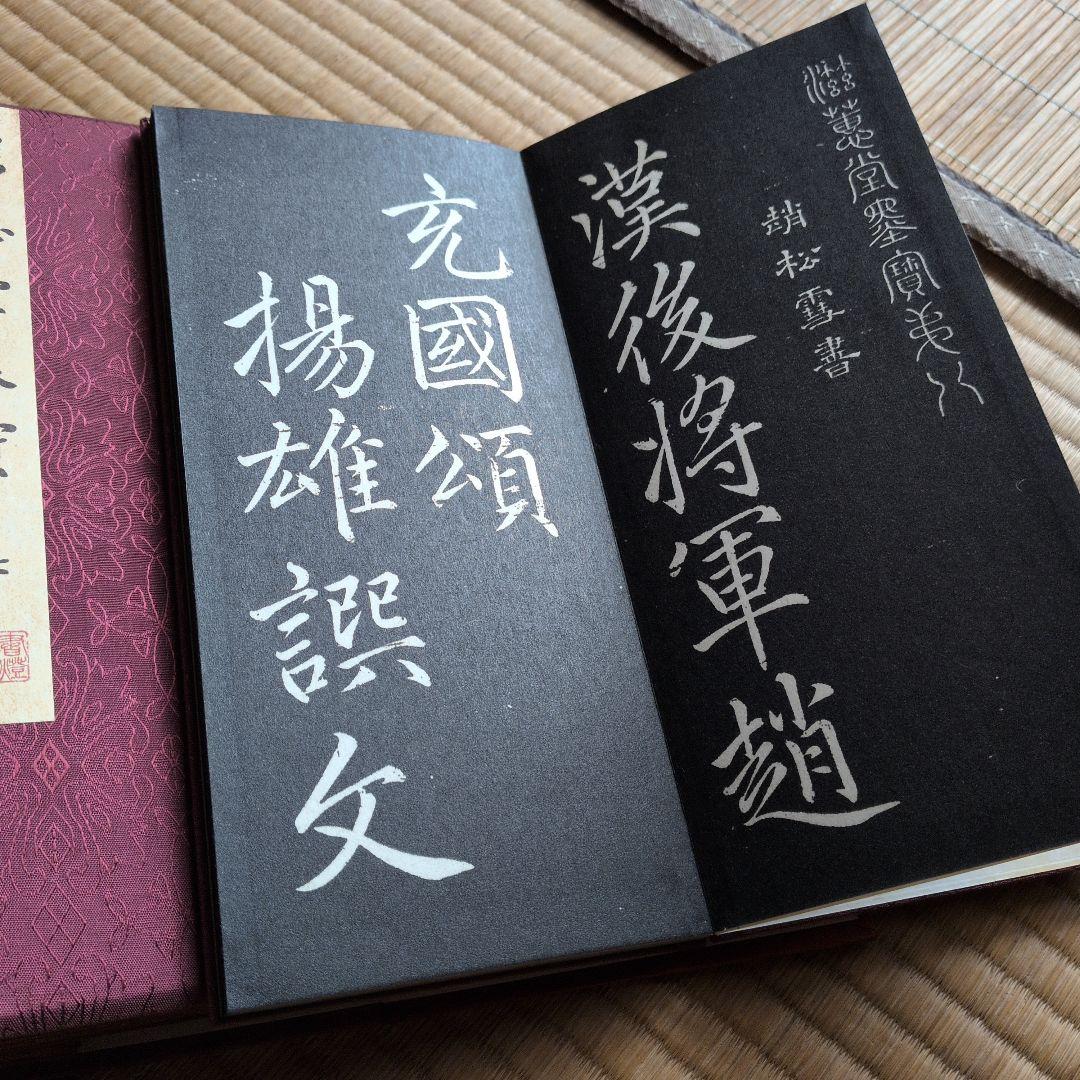 滋蕙堂墨寶弟八
趙松雪書
漢後將軍趙
充國頌
揚雄譔文